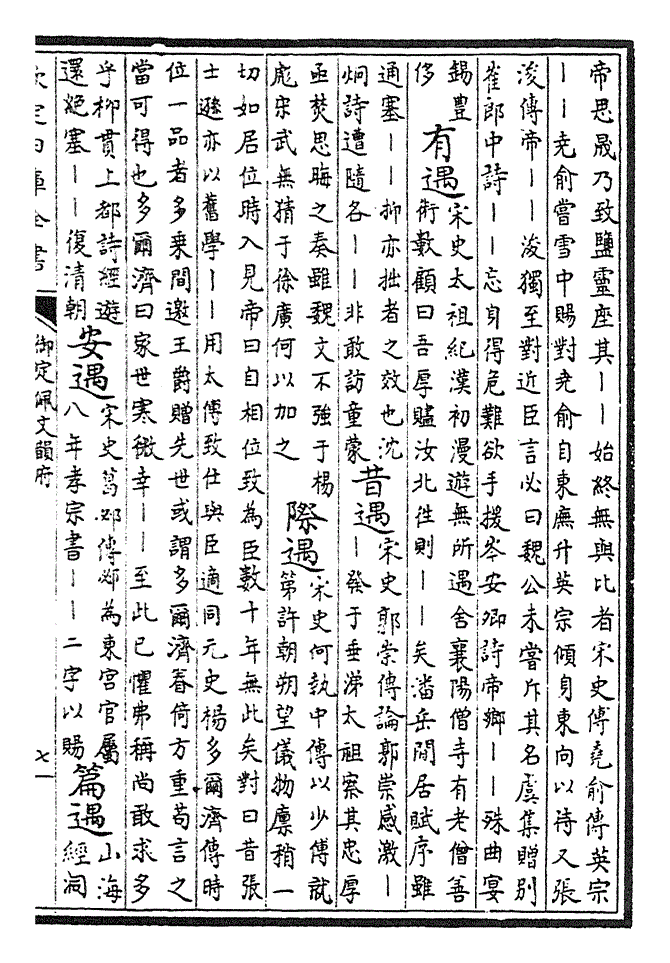 帝思晟乃致鹽靈座其丨丨始終無與比者宋史傅堯俞傳英宗
丨丨堯俞嘗雪中賜對堯俞自東廡升英宗傾身東向以待又張
浚傳帝丨丨浚獨至對近臣言必曰魏公未嘗斥其名虞集贈別
崔郎中詩丨丨忘身得危難欲手援岑安卿詩帝鄉丨丨殊曲宴
錫豐
侈
有遇
宋史太祖紀漢初漫遊無所遇舍襄陽僧寺有老僧善
術數顧曰吾厚贐汝北徃則丨丨矣潘岳閒居賦序雖
通塞丨丨抑亦拙者之效也沈
炯詩遭隨各丨丨非敢訪童蒙
昔遇
宋史郭崇傳論郭崇感激丨
丨發于垂涕太祖察其忠厚
亟焚思晦之奏雖魏文不強于楊
彪宋武無猜于徐廣何以加之
際遇
宋史何執中傳以少傅就
第許朝朔望儀物廪稍一
切如居位時入見帝曰自相位致為臣數十年無此矣對曰昔張
士遜亦以舊學丨丨用太傅致仕與臣適同元史楊多爾濟傳時
位一品者多乗間邀王爵贈先世或謂多爾濟眷倚方重苟言之
當可得也多爾濟曰家世寒微幸丨丨至此已懼弗稱尚敢求多
乎柳貫上都詩經遊
還絶塞丨丨復清朝
安遇
宋史葛邲傳邲為東宫官屬
八年孝宗書丨丨二字以賜
篇遇
山海
經洞
欽定四庫全書
御定佩文韻府
七一